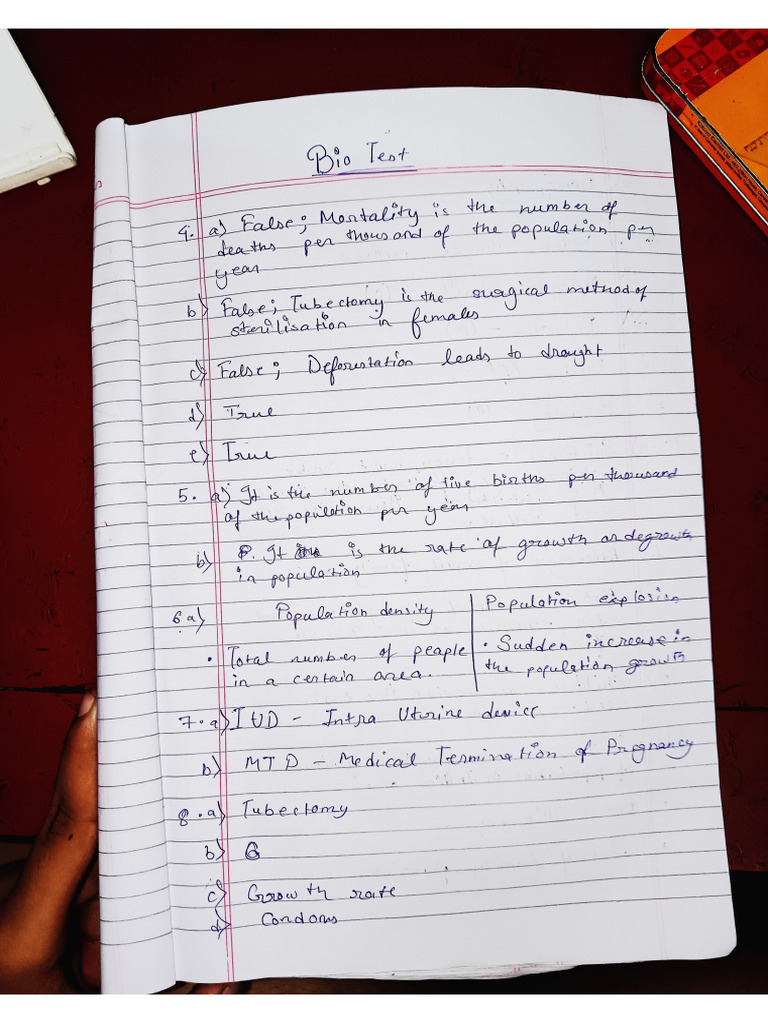 Bio Test
4. a) False; Mortality is the number of
deaths per thousand of the population per
year
b) False; Tubectomy is the surgical method of
sterilisation in females
c) False; Deforestation leads to drought
d) True
e) True
5. a) It is the number of live births per thousand
of the population per year
b) It is the rate of growth or degrowth
in population
6 a) Population density | Population explosion
• Total number of people | • Sudden increase in
in a certain area. | the population growth
7. a) IUD - Intra Uterine device
b) MTP - Medical Termination of Pregnancy
8. a) Tubectomy
b) G
c) Growth rate
d) Condoms